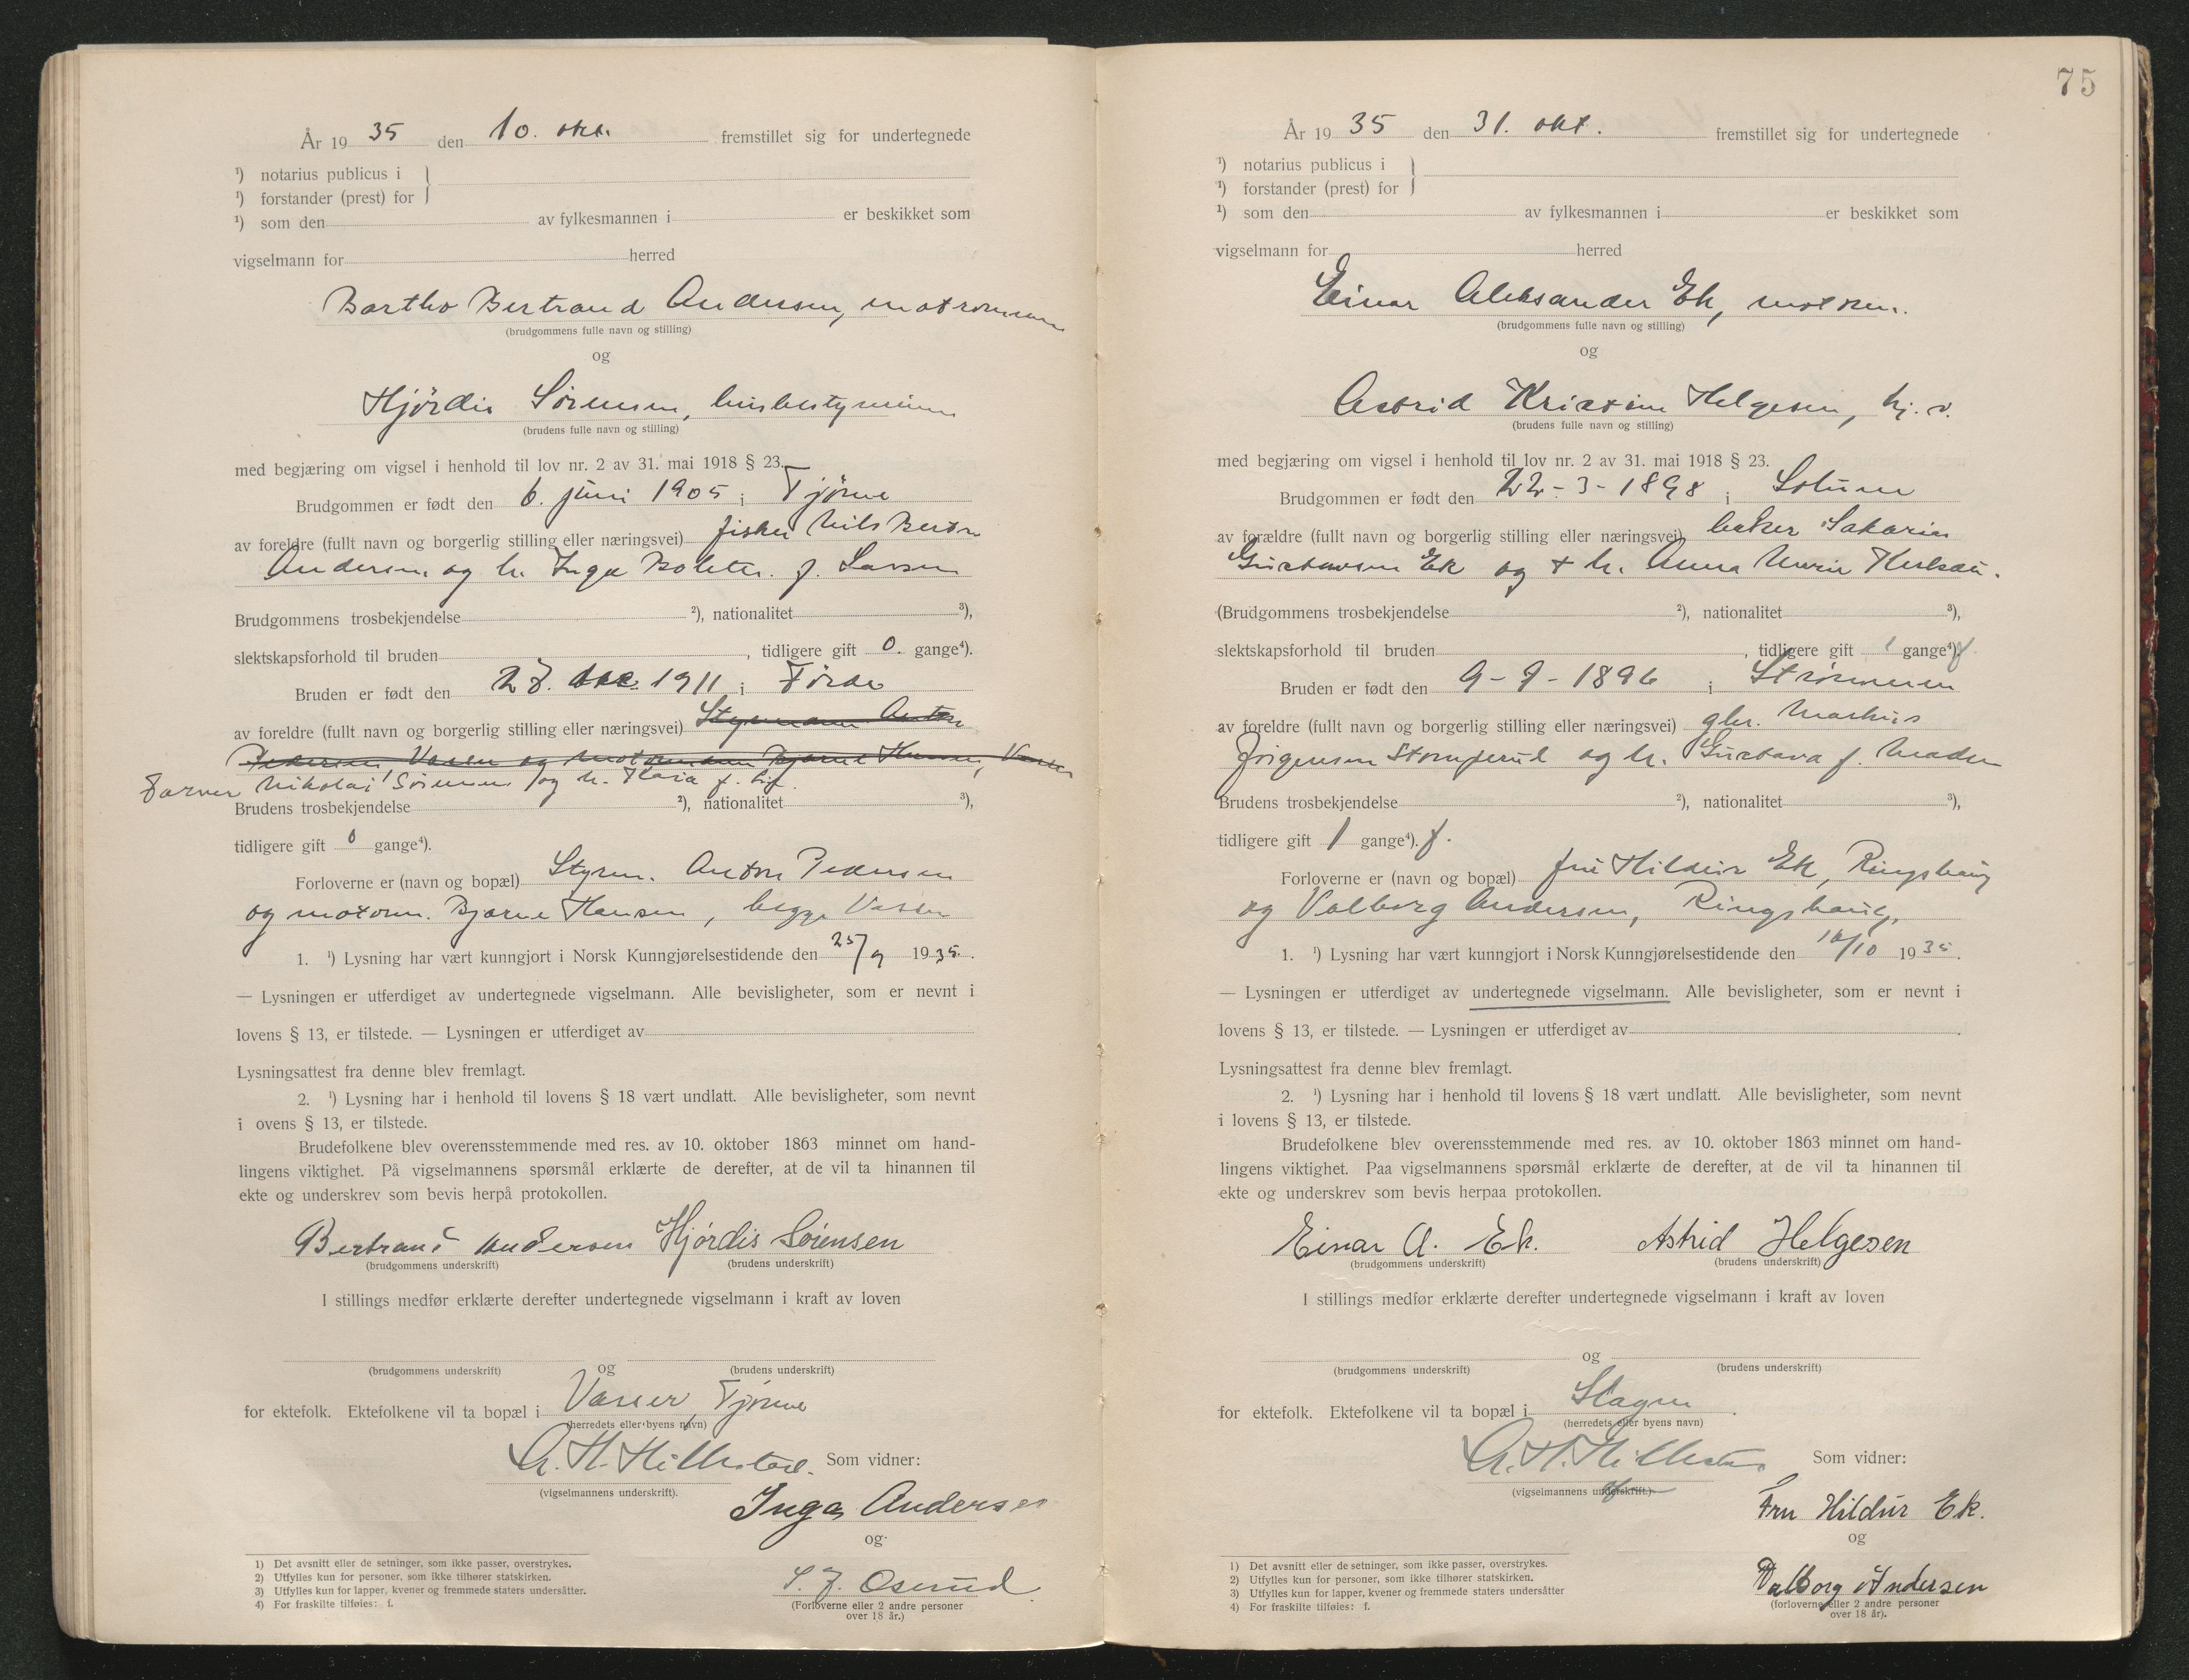 År 1935 den 10. okt. fremstillet sig for undertegnede
¹) notarius publicus i }
¹) forstander (prest) for
¹) som den av fylkesmannen i er beskikket som
vigselmann for herred
Bartho Bertrand Andersen, matros
(brudgommens fulle navn og stilling)
og
Hjördis Sørensen, husbestyrerinne
(brudens fulle navn og stilling)
med begjæring om vigsel i henhold til lov nr. 2 av 31. mai 1918 § 23.
Brudgommen er født den 6. juni 1905 i Tjøme
av foreldre (fullt navn og borgerlig stilling eller næringsvei) fisker Nils Berton
Andersen og h. Inga Bolette f. Larsen
Brudgommens trosbekjendelse ²), nationalitet ³),
slektskapsforhold til bruden , tidligere gift 0. gange⁴).
Bruden er født den 27. 1911 i Förde
av foreldre (fullt navn og borgerlig stilling eller næringsvei) Styrmann Anton
Pedersen Vasser og motormann Bjarne Hansen, Vasser
Farver Nikolai Sörensen og h.
Brudens trosbekjendelse ²), nationalitet ³),
tidligere gift 0 gange⁴).
Forloverne er (navn og bopæl) Styrm. Anton Pedersen
og motorm. Bjarne Hansen, begge Vasser
1. ¹) Lysning har vært kunngjort i Norsk Kunngjørelsestidende den 25/9 1935.
— Lysningen er utferdiget av undertegnede vigselmann. Alle bevisligheter, som er nevnt i
lovens § 13, er tilstede. — Lysningen er utferdiget av
Lysningsattest fra denne blev fremlagt.
2. ¹) Lysning har i henhold til lovens § 18 vært undlatt. Alle bevisligheter, som nevnt
i ovens § 13, er tilstede.
Brudefolkene blev overensstemmende med res. av 10. oktober 1863 minnet om hand-
lingens viktighet. På vigselmannens spørsmål erklærte de derefter, at de vil ta hinannen til
ekte og underskrev som bevis herpå protokollen.
Bertrand Andersen Hjördis Sörensen
(brudgommens underskrift) (brudens underskrift)
I stillings medfør erklærte derefter undertegnede vigselmann i kraft av loven
og
(brudgommens underskrift) (brudens underskrift)
for ektefolk. Ektefolkene vil ta bopæl i Vasser, Tjöme
(herredets eller byens navn)
A. H. Hillestad. Som vidner:
(vigselmannens underskrift).
Inga Andersen
og
S. J. Oserud
(Forloverne eller 2 andre personer
over 18 år.)
1) Det avsnitt eller de setninger, som ikke passer, overstrykes.
2) Utfylles kun for personer, som ikke tilhører statskirken.
3) Utfylles kun for lapper, kvener og fremmede staters undersåtter.
4) For fraskilte tilføies: f.
75
År 1935 den 31. okt. fremstillet sig for undertegnede
¹) notarius publicus i }
¹) forstander (prest) for
¹) som den av fylkesmannen i er beskikket som
vigselmann for herred
Einar Aleksander Ek,
(brudgommens fulle navn og stilling)
og
Astrid Kristine Helgesen, hj. v.
(brudens fulle navn og stilling)
med begjæring om vigsel i henhold til lov nr. 2 av 31. mai 1918 § 23.
Brudgommen er født den 22-3-1898 i Solum
av forældre (fullt navn og borgerlig stilling eller næringsvei) baker Sakarias
Gustavsen Ek og + h. Anna Marie
(Brudgommens trosbekjendelse ²), nationalitet ³),
slektskapsforhold til bruden , tidligere gift 1 gange⁴) f.
Bruden er født den 9-7-1896 i Strømmen
av foreldre (fullt navn og borgerlig stilling eller næringsvei) gbr. Markus
Jörgensen Stomperud og h. Gustava f. Madsen
Brudens trosbekjendelse ²), nationalitet ³),
tidligere gift 1 gange⁴). f.
Forloverne er (navn og bopæl) fru Hildur Ek, Ringshaug
og Valborg Andersen, Ringshaug.
1. ¹) Lysning har vært kunngjort i Norsk Kunngjørelsestidende den 16/10 1935.
— Lysningen er utferdiget av undertegnede vigselmann. Alle bevisligheter, som er nevnt i
lovens § 13, er tilstede. — Lysningen er utferdiget av .
Lysningsattest fra denne blev fremlagt.
2. ¹) Lysning har i henhold til lovens § 18 vært undlatt. Alle bevisligheter, som nevnt
i lovens § 13, er tilstede.
Brudefolkene blev overensstemmende med res. av 10. oktober 1863 minnet om hand-
lingens viktighet. Paa vigselmannens spørsmål erklærte de derefter, at de vil ta hinannen til
ekte og underskrev som bevis herpaa protokollen.
Einar A. Ek. Astrid Helgesen
(brudgommens underskrift) (brudens underskrift)
I stillings medfør erklærte derefter undertegnede vigselmann i kraft av loven
og
(brudgommens underskrift) (brudens underskrift)
for ektefolk. Ektefolkene vil ta bopæl i Slagen .
(herredets eller byens navn)
A. H. Hillestad Som vidner:
(vigselmannens underskrift.)
Fru Hildur Ek.
og
Valborg Andersen
(forloverne eller 2 andre personer
over 18 år).
1) Det avsnitt eller de setninger, som ikke passer, overstrykes.
2) Utfylles kun for personer, som ikke tilhører statskirken.
3) Utfylles kun for lapper, kvener og fremmede staters undersåtter
4) For fraskilte tilføies: f.